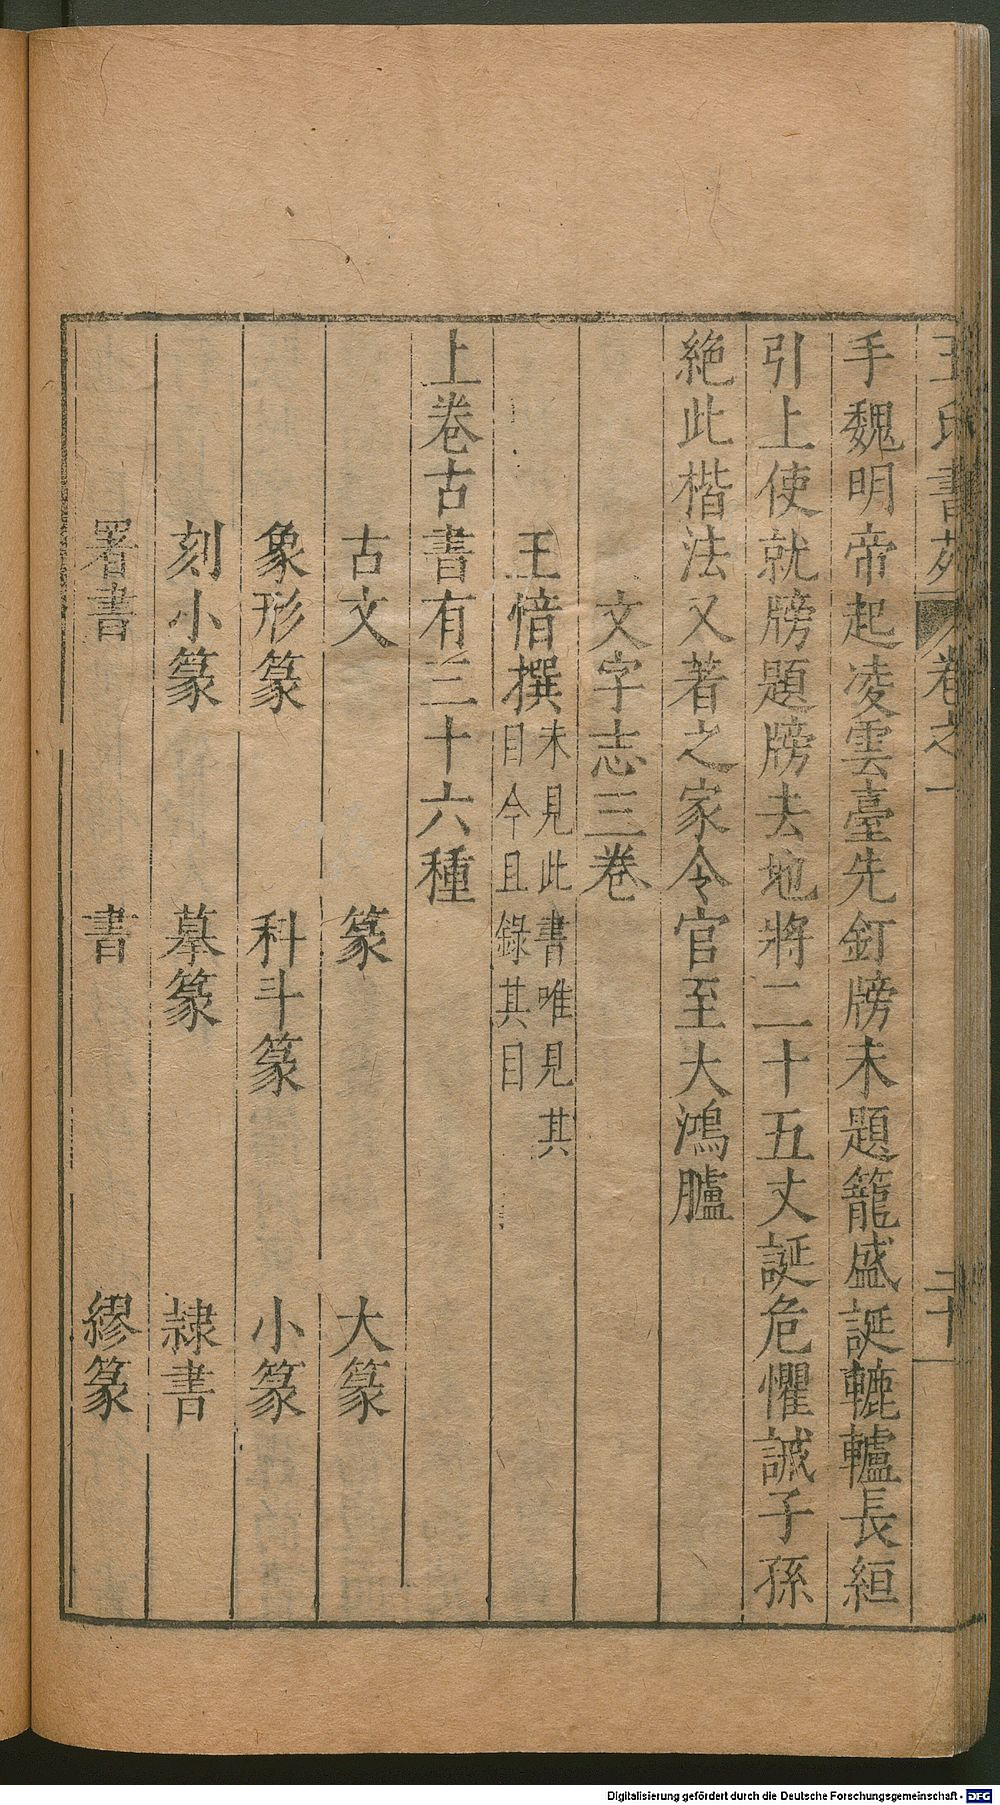 王氏書苑 卷之一 二十
手魏明帝起凌雲臺先釘牓未題籠盛誕轆轤長絙
引上使就牓題牓去地將二十五丈誕危懼誡子孫
絶此楷法又著之家令官至大鴻臚
文字志三卷
王愔撰未見此書唯見其
目今且錄其目
上卷古書有三十六種
古文 篆 大篆
象形篆 科斗篆 小篆
刻小篆 摹篆 隷書
署書 書 繆篆
Digitalisierung gefördert durch die Deutsche Forschungsgemeinschaft - DFG